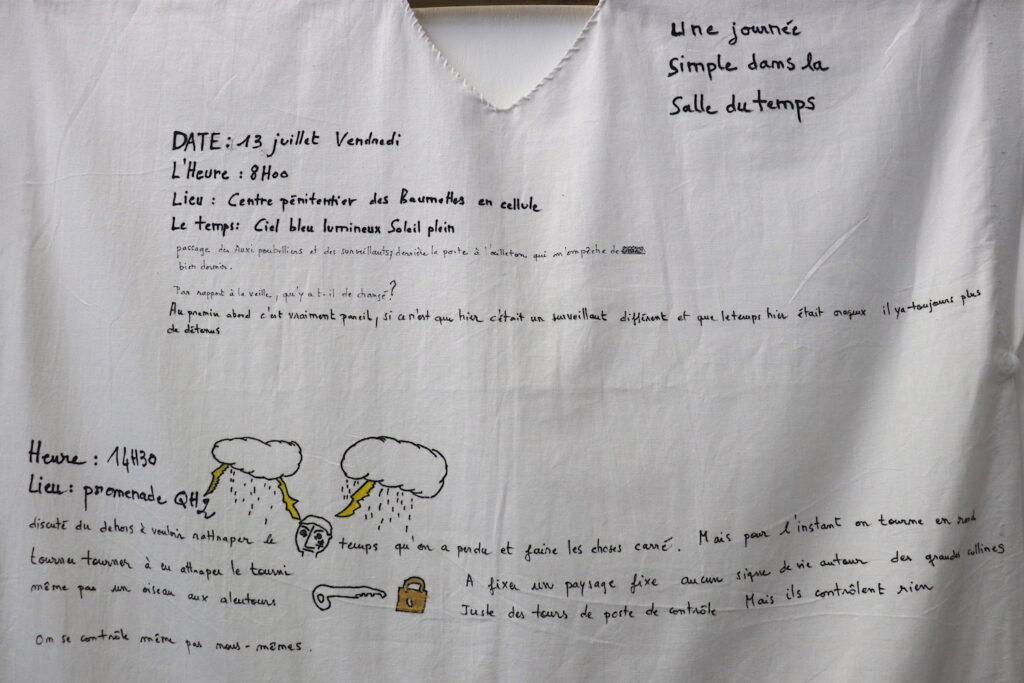 Une journée
Simple dans la
Salle du temps
DATE : 13 juillet Vendredi
L'Heure : 8H00
Lieu : Centre pénitentier des Baumettes en cellule
Le temps : Ciel bleu lumineux Soleil plein
passage des Auxi poubelliers et des surveillants, derrière la porte à l'œilleton qui m'empêche de
bien dormir.
Par rapport à la veille, qu'y a t-il de changé ?
Au premier abord c'est vraiment pareil, si ce n'est que hier c'était un surveillant différent et que le temps hier était orageux il ya toujours plus
de détenus
Heure : 14H30
Lieu : promenade QH2
discuté du dehors à vouloir rattraper le temps qu'on a perdu et faire les choses carré. Mais pour l'instant on tourne en rond
tourner tourner à en attraper le tourni
A fixer un paysage fixe aucun signe de vie autour des grandes collines
même pas un oiseau aux alentours
Juste des tours de poste de contrôle Mais ils contrôlent rien
On se contrôle même pas nous-mêmes.